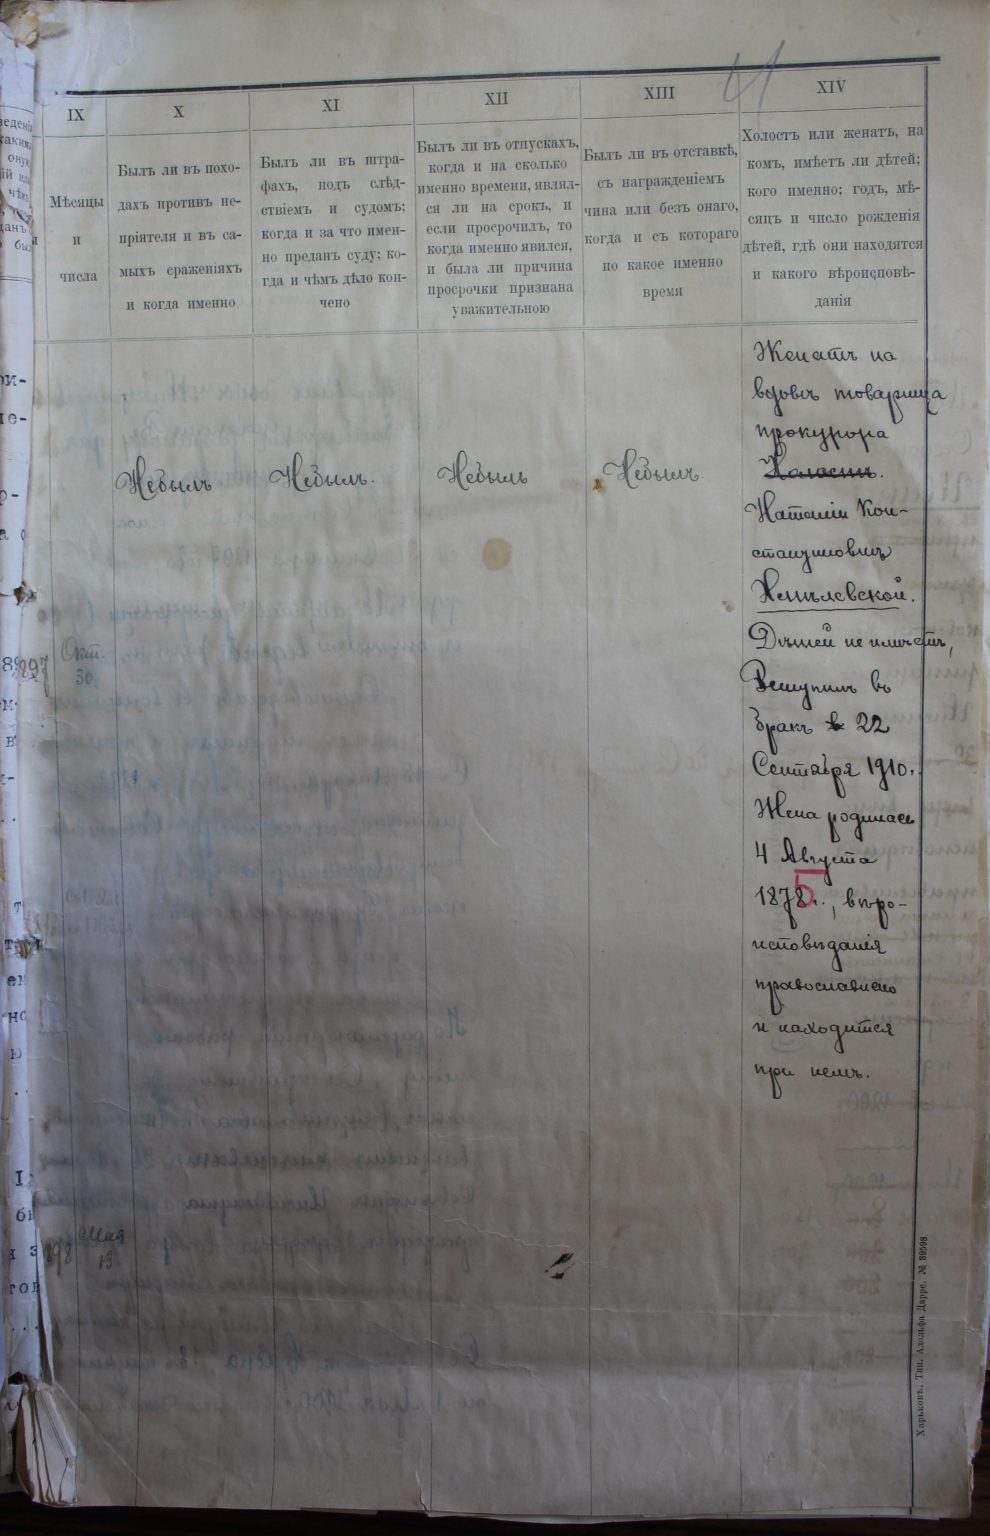 IX
X
XI
XII
XIII
XIV
Мѣсяцы
и
числа
Былъ ли въ похо-
дахъ противъ не-
пріятеля и въ са-
мыхъ сраженіяхъ
и когда именно
Былъ ли въ штра-
фахъ, подъ слѣд-
ствіемъ и судомъ;
когда и за что имен-
но преданъ суду; ко-
гда и чѣмъ дѣло кон-
чено
Былъ ли въ отпускахъ,
когда и на сколько
именно времени, являл-
ся ли на срокъ, и
если просрочилъ, то
когда именно явился,
и была ли причина
просрочки признана
уважительною
Былъ ли въ отставкѣ,
съ награжденіемъ
чина или безъ онаго,
когда и съ котораго
по какое именно
время
Холостъ или женатъ, на
комъ, имѣетъ ли дѣтей;
кого именно; годъ, мѣ-
сяцъ и число рожденія
дѣтей, гдѣ они находятся
и какого вѣроисповѣ-
данія
Окт.
30.
897
Мая
13.
898
Небылъ
Небылъ.
Небылъ
Небылъ.
Женатъ на
вдовѣ товарища
прокурора
Холостъ.
Наталіи Кон-
стантиновнѣ
Дѣтей не имѣетъ,
Вступилъ въ
бракъ в 22
Сентября 1910 г.
Жена родилась
4 Августа
1878 г., вѣро-
5
исповѣданія
православнаго
и находится
при немъ.
Харьковъ. Тип. Адольфа Дарре. № 39598